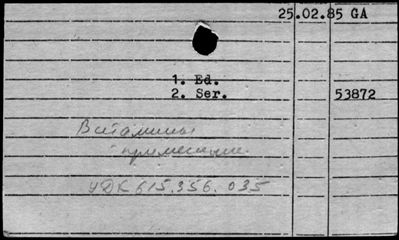 25.02.85 GA
1. Ed.
2. Ser. 53872
Витамины
применение.
УДК 615.356.035